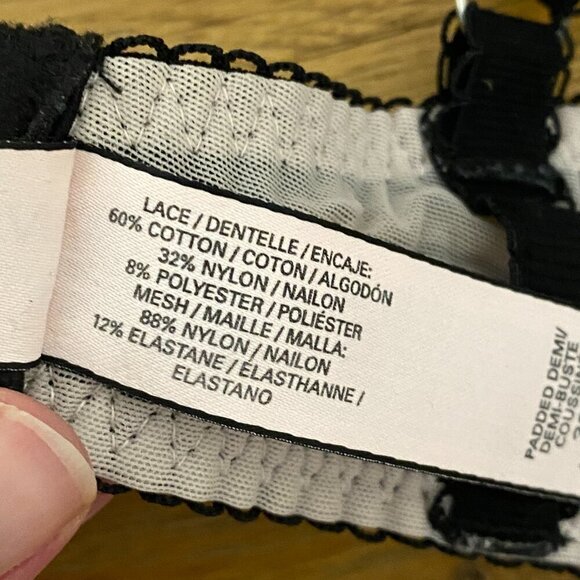 LACE / DENTELLE / ENCAJE:
60% COTTON / COTON / ALGODÓN
32% NYLON / NAILON
8% POLYESTER / POLIÉSTER
MESH / MAILLE / MALLA:
88% NYLON / NAILON
12% ELASTANE / ELASTHANNE /
ELASTANO
PADDED DEMI/
DEMI-BUSTE